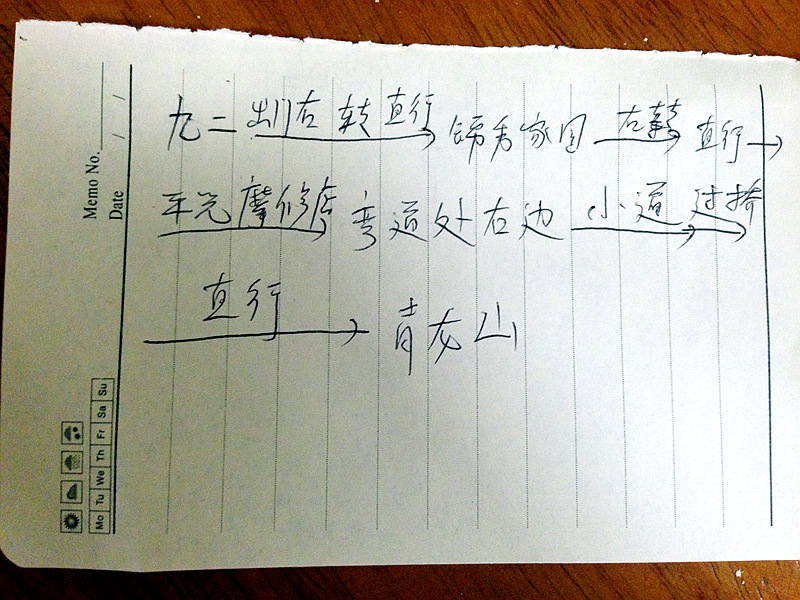 九二 出门右转 直行 → 锦秀家园 右转 → 直行 →
摩修店 → 弯道处右边 小道 → 过桥 →
直行 → 青龙山
Memo No.
Date / /
Mo Tu We Th Fr Sa Su